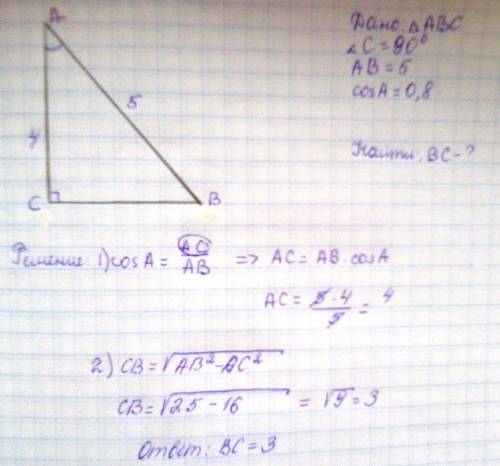 A
5
4
C
B
Дано: △ABC
∠C = 90°
AB = 5
cosA = 0,8
Найти: BC - ?
Решение: 1) cosA = AC/AB => AC = AB · cosA
AC = 5 · 4/5 = 4
2) CB = √AB² - AC²
CB = √25 - 16 = √9 = 3
Ответ: BC = 3